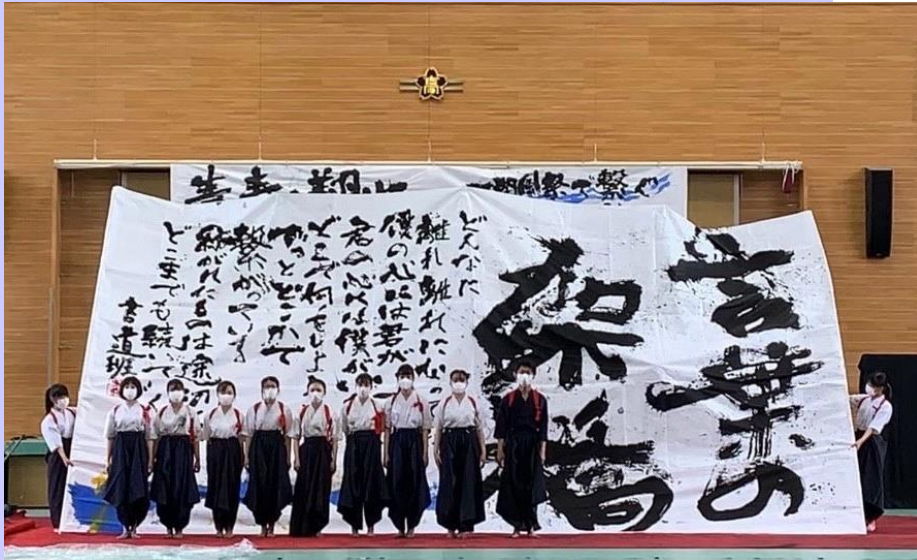 祭で繋ぐ
言葉の
架橋
どんなに
離れ離れになって
僕の心には君が
君の心には僕が
どこで何をしよ
きっとどこかで
繋がっている
紡がれたものは
どこまでも続いて
書道班